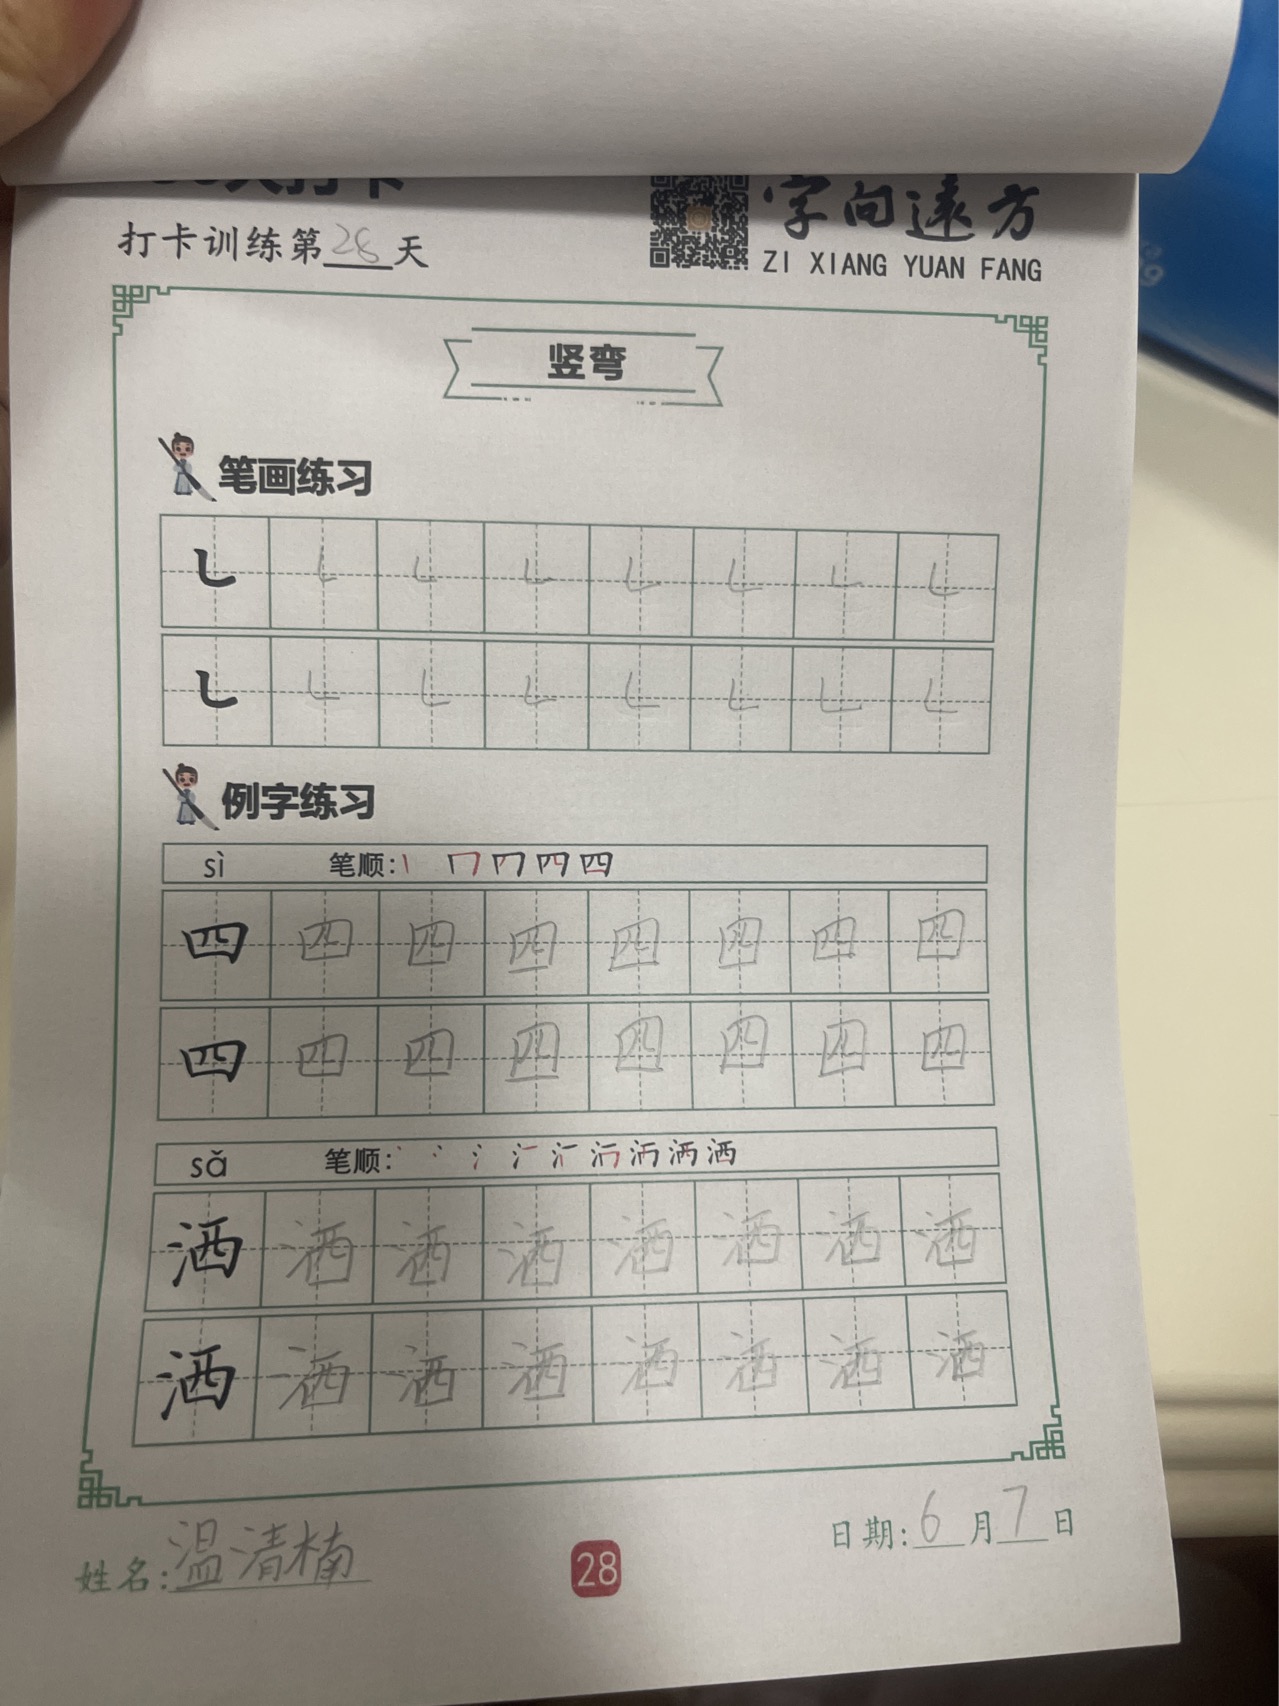 打卡训练第28天
字向远方
ZI XIANG YUAN FANG
竖弯
笔画练习
㇄ ㇄ ㇄ ㇄ ㇄ ㇄ ㇄ ㇄
㇄ ㇄ ㇄ ㇄ ㇄ ㇄ ㇄ ㇄
例字练习
sì 笔顺: 四
四 四 四 四 四 四 四 四
四 四 四 四 四 四 四 四
sǎ 笔顺: 洒
洒 洒 洒 洒 洒 洒 洒 洒
洒 洒 洒 洒 洒 洒 洒 洒
姓名:温清楠
28
日期:6月7日